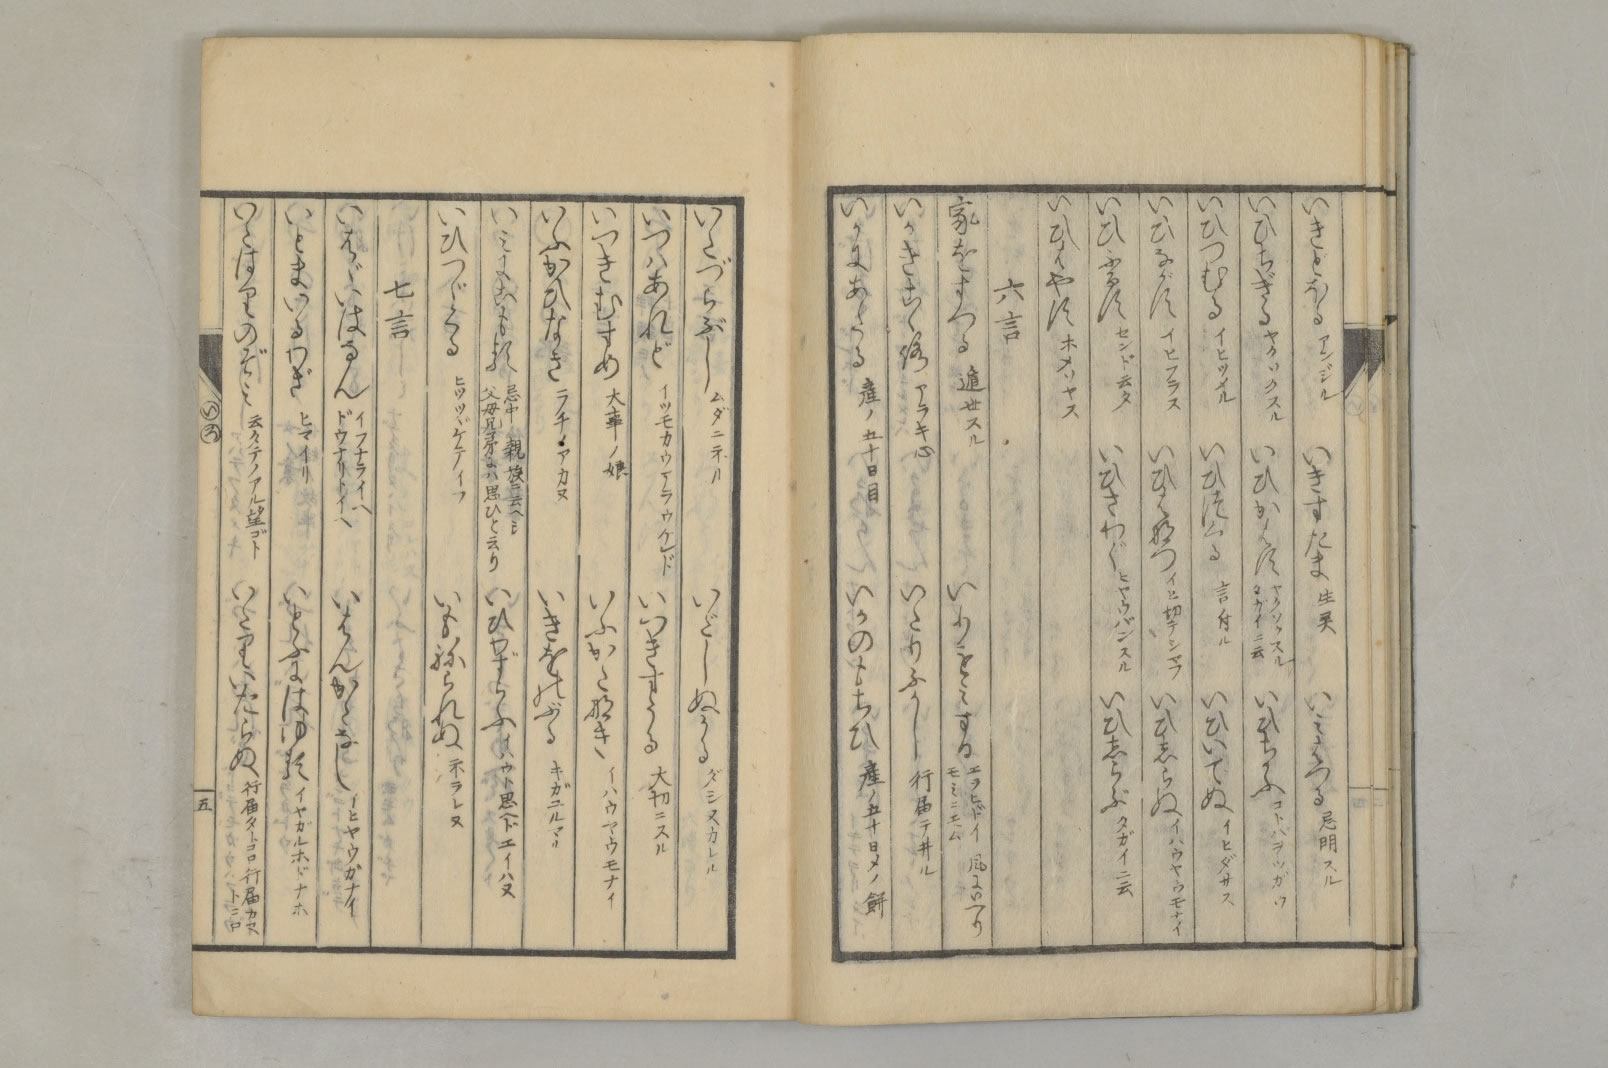 いきどほる アンジル いきすだま 生灵 いみあくる 忌明スル
いひちぎる ヤクソクスル いひかはす ヤクソクスル タガイニ云 いひあらそふ
いひつむる イヒツメル いひつくる 言付ル いひいでぬ イヒダサス
いひながす イヒフラス いひはなつ イヒ切テシマフ いひしらぬ イハウヤウモナイ
いひふるす センド云タ いひさわぐ ヒヤウバンスル いひしらぶ タガイニ云
いひはやす ホメソヤス
六言
家をすつる 遁世スル
アラキ心 いたりふかし 行届テ井ル
いかにあたる 産ノ五十日目 いかのもちひ 産ノ五十日メノ餅
いたづらぶし ムダニネル いだしぬかる ダシヌカレル
いつはあれど イツモカウアラウケレド いつきすうる 大切ニスル
いつきむすめ 大事ノ娘 いふかたなき イハウヤウモナイ
いふかひなき ラチノアカヌ いきをのぶる
忌中 親族ニ云ヘシ 父母兄弟にハ思ひと云り いひわづらふ イハウト思ヘド エイハヌ
いひつづくる ヒツツヾケテイフ いもねられぬ ネラレヌ
七言
いはゞいはなん イフナライヘ ドウナリトイヘ いはんかたなし イヒヤウガナイ
いとまいるわざ ヒマイリ いとふにはゆる イヤガルホドナホ
いたはりのぞみ 云タテノアル望ゴト いたりいたらぬ 行届タトコロ行届カヌトコロ
いろ
五